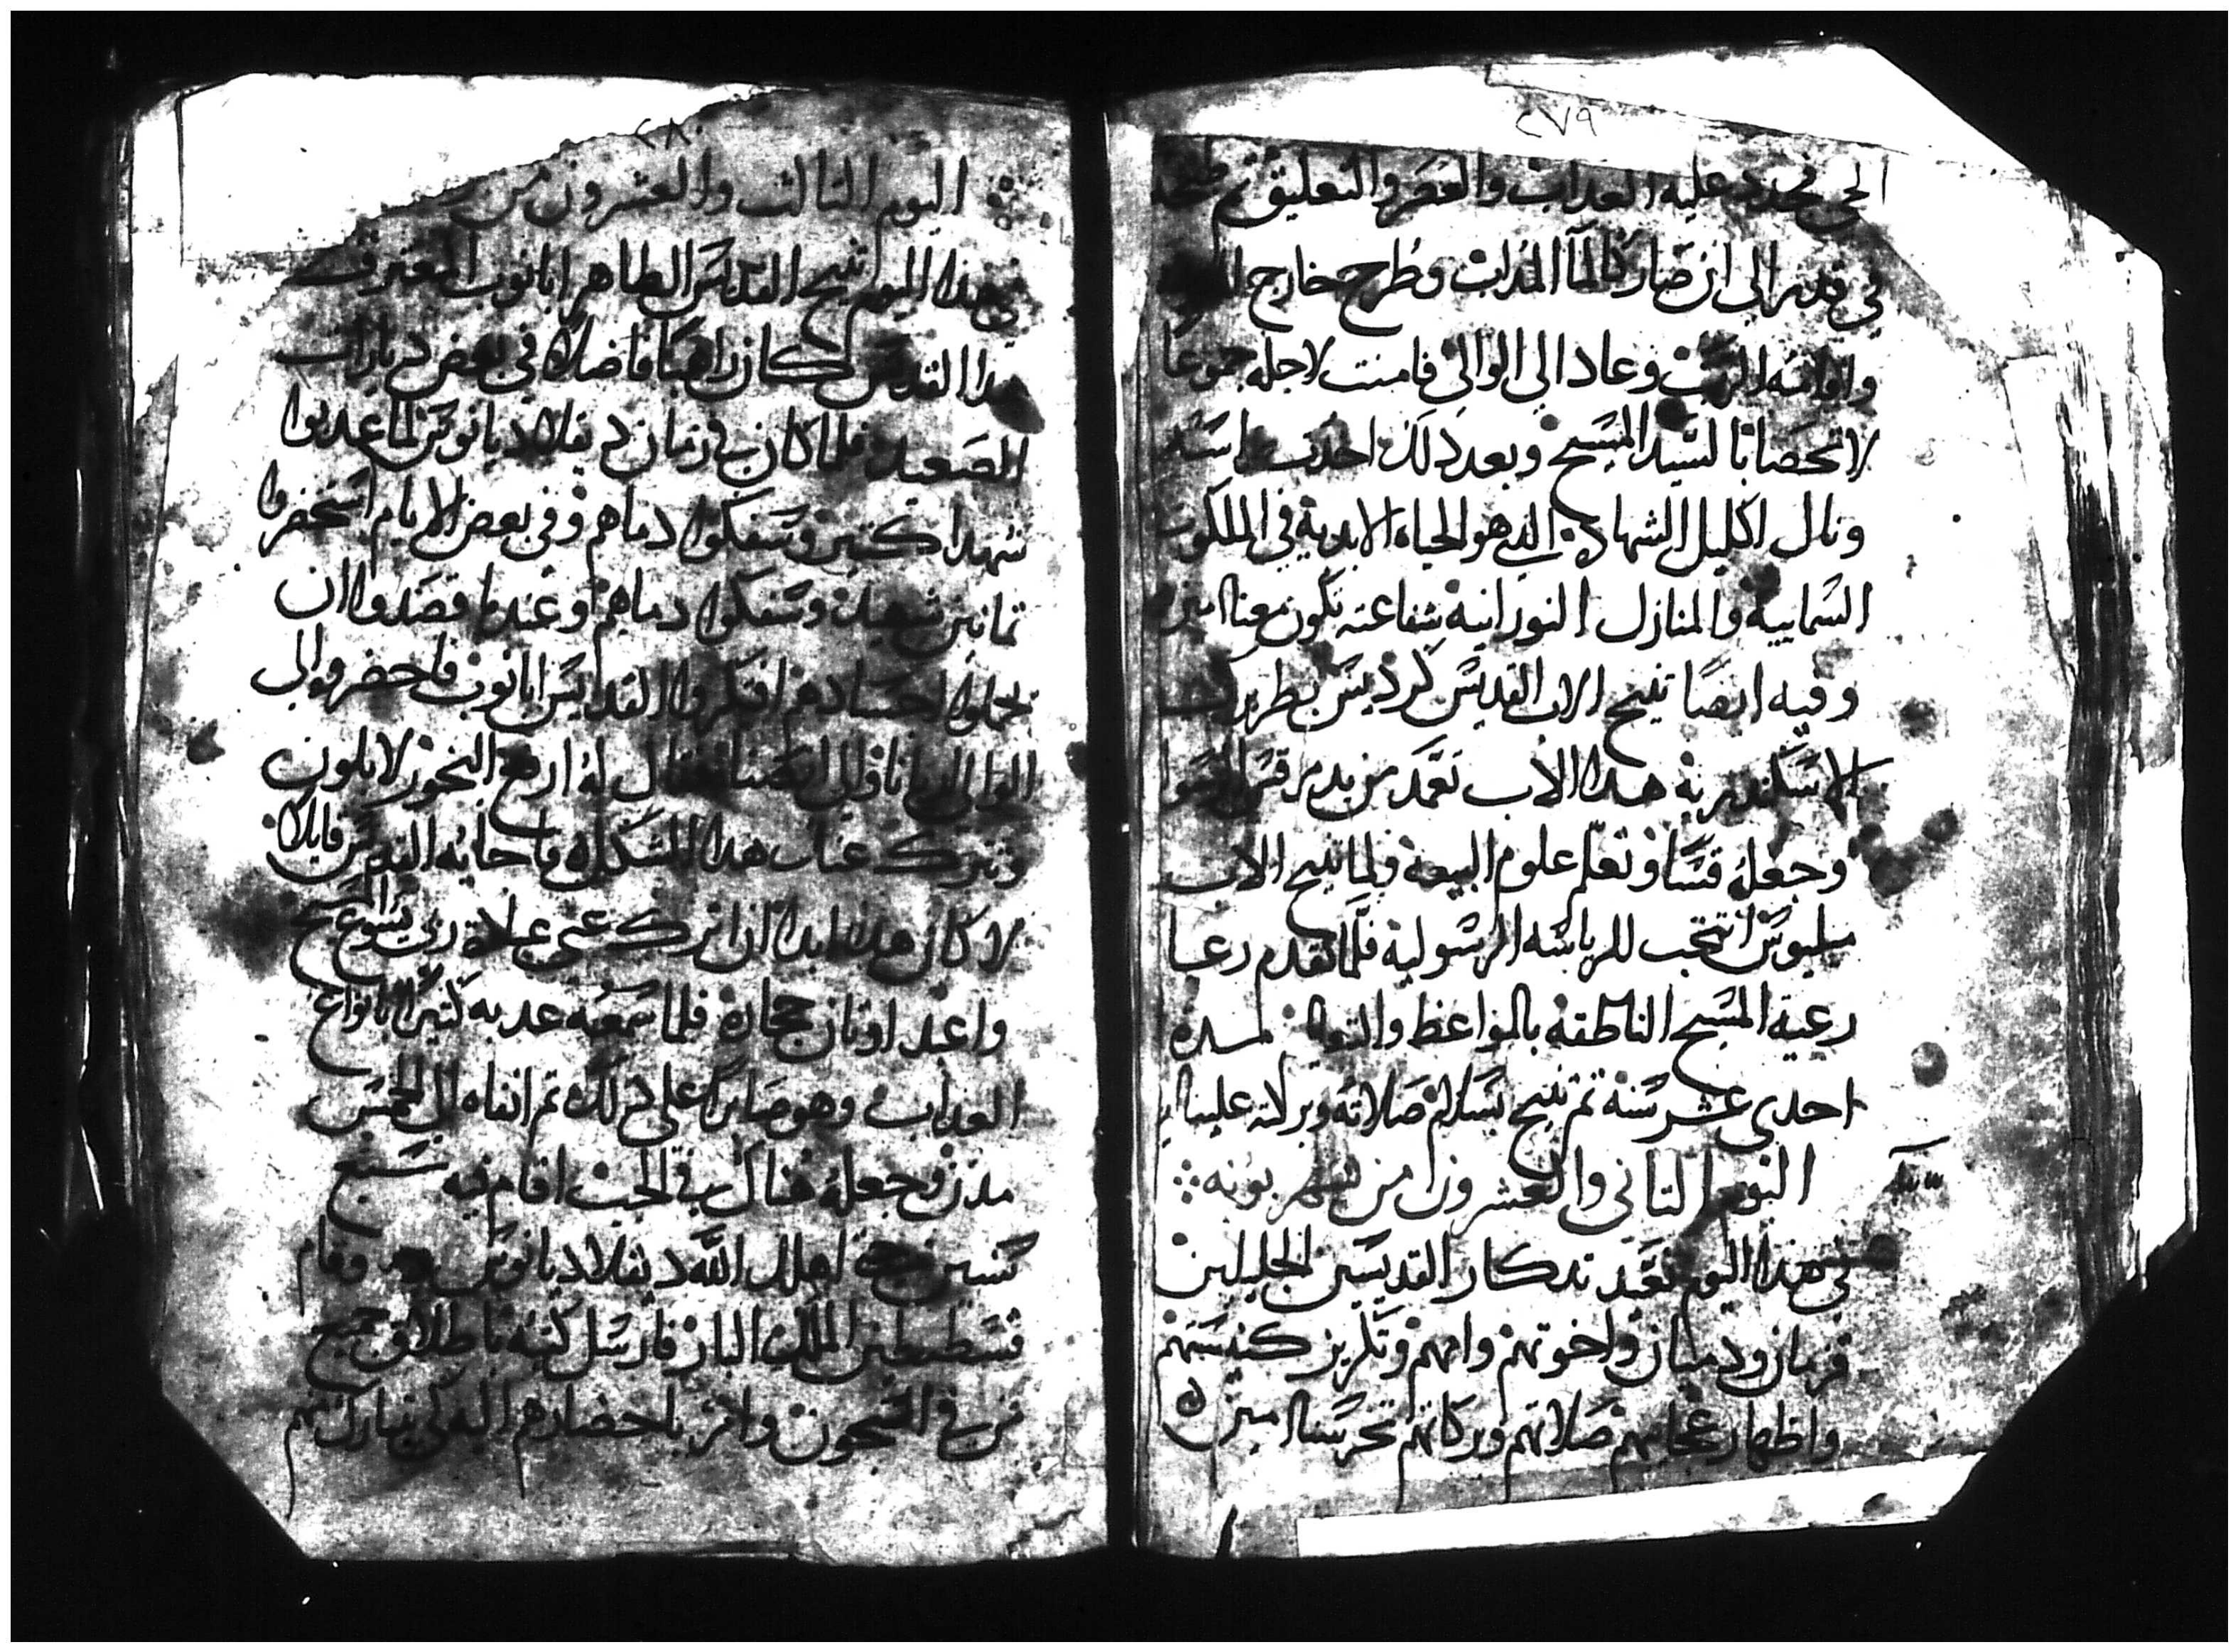 ٢٧٩
الحي فجدد عليه العداب والعصر والتعليق تم طبخه
في قدر الى ان صار كالما المداب وطرح خارج
واقامه الرب وعاد الي الوالي فامنت لاجله جموعا
لا تحصا بالسيد المسيح وبعد دلك احدت راسه
ونال اكليل الشهادة الدي هو الحياه الابدية في الملكوت
السماييه والمنازل النورانية شفاعته تكون معنا امين
وفيه ايضا تنيح الاب القديس كردينس بطريرك
الاسكندريه هدا الاب تعمد من يد مرقس
وجعله قسا وتعلم علوم البيعه ولما تنيح الاب
ميليوس انتخب للرياسه الرسولية فلما تقدم رعا
رعية المسيح الناطقه بالمواعظ لمده
احدى عشر سنه تم تنيح بسلام صلاته وبركاته علينا
اليوم التاني والعشرون من شهر بونه
في هدا اليوم نعيد تدكار القديسين الجليلين
قزمان ودميان واخوتهم وامهم وتكريز كنيستهم
واظهار عجايبهم صلاتهم وبركاتهم تحرسنا امين
٢٨٠
اليوم التالت والعشرون من
في هدا اليوم تنيح القديس الطاهر ابانوب المعترف
هدا القديس كان راهبا فاضلا في بعض ديارات
الصعيد فلما كان في زمان ديقلاديانوس لما عدبوا
شهدا كتير وسفكوا دماهم وفي بعض الايام استحضروا
تمانين شهيد وسفكوا دماهم وعندما قصدوا ان
يحملوا اجسادهم افتكروا القديس ابانوب فاحضروه الى
الوالي فقال له ارفع البخور للاوتون
وتترك عنك هدا المشكل فاجابه القديس قايلا
لا كان هدا ابدا ان اترك عني عبادة ربي يسوع المسيح
واعبد اوتان حجاره فلما سمعه عدبه كتيرا بانواع
العداب وهو صابرا على دلك تم انفاه الى الخمس
مدن وجعله هناك في الجب اقام فيه سبع
سنين اهلك الله ديقلاديانوس وقام
قسطنطين الملك البار فارسل كتبه باطلاق جميع
من في السجون وامر باحضارهم اليه لكي يتبارك منهم